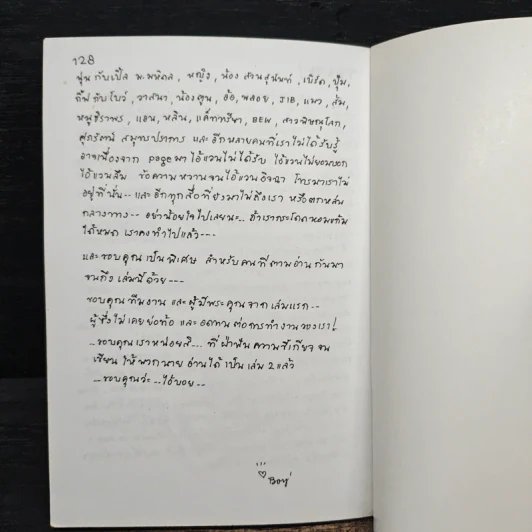 128
นุ่น กับเปิ้ล ม.มหิดล, หญิง, น้อง สวนสุนันท์, เบิร์ด, ปุ้ม,
กิ๊ฟ กับ โบว์, วาสนา, น้องตูน, อ้อ, พลอย, JIB, แมว, ส้ม,
หนูธิราพร, แอน, หลิน, แค็ทรียา, BEW, สาวพิษณุโลก,
สุภรัตน์ สมุทรปราการ และ อีกหลายคนที่เราไม่ได้รับรู้
อาจเนื่องจาก page มา ไอ้แวนไม่ได้รับ ไอ้แวนไม่ยอมบอก
ไอ้แวนลืม ข้อความหวานจนไอ้แวนอิจฉา โทรมาเราไม่
อยู่ที่นั่น-- และอีกทุกสื่อที่ส่งมาไม่ถึงเรา หรือตกหล่น
กลางทาง-- อย่าน้อยใจไปเลยนะ.. ถ้าเรากระโดดหอมแก้ม
ได้หมด เราคงทำไปแล้ว---
และขอบคุณเป็นพิเศษ สำหรับคนที่ตามอ่านกันมา
จนถึงเล่มนี้ด้วย---
ขอบคุณทีมงาน และผู้มีพระคุณจากเล่มแรก--
ผู้ซึ่งไม่เคยย่อท้อ และอดทนต่อการทำงานของเรา!
...ขอบคุณเราหน่อยสิ.... ที่ฝ่าฟันความขี้เกียจ จน
เขียนให้พวกนายอ่านได้เป็นเล่ม 2 แล้ว
...ขอบคุณว่ะ...ไอ้บอย...